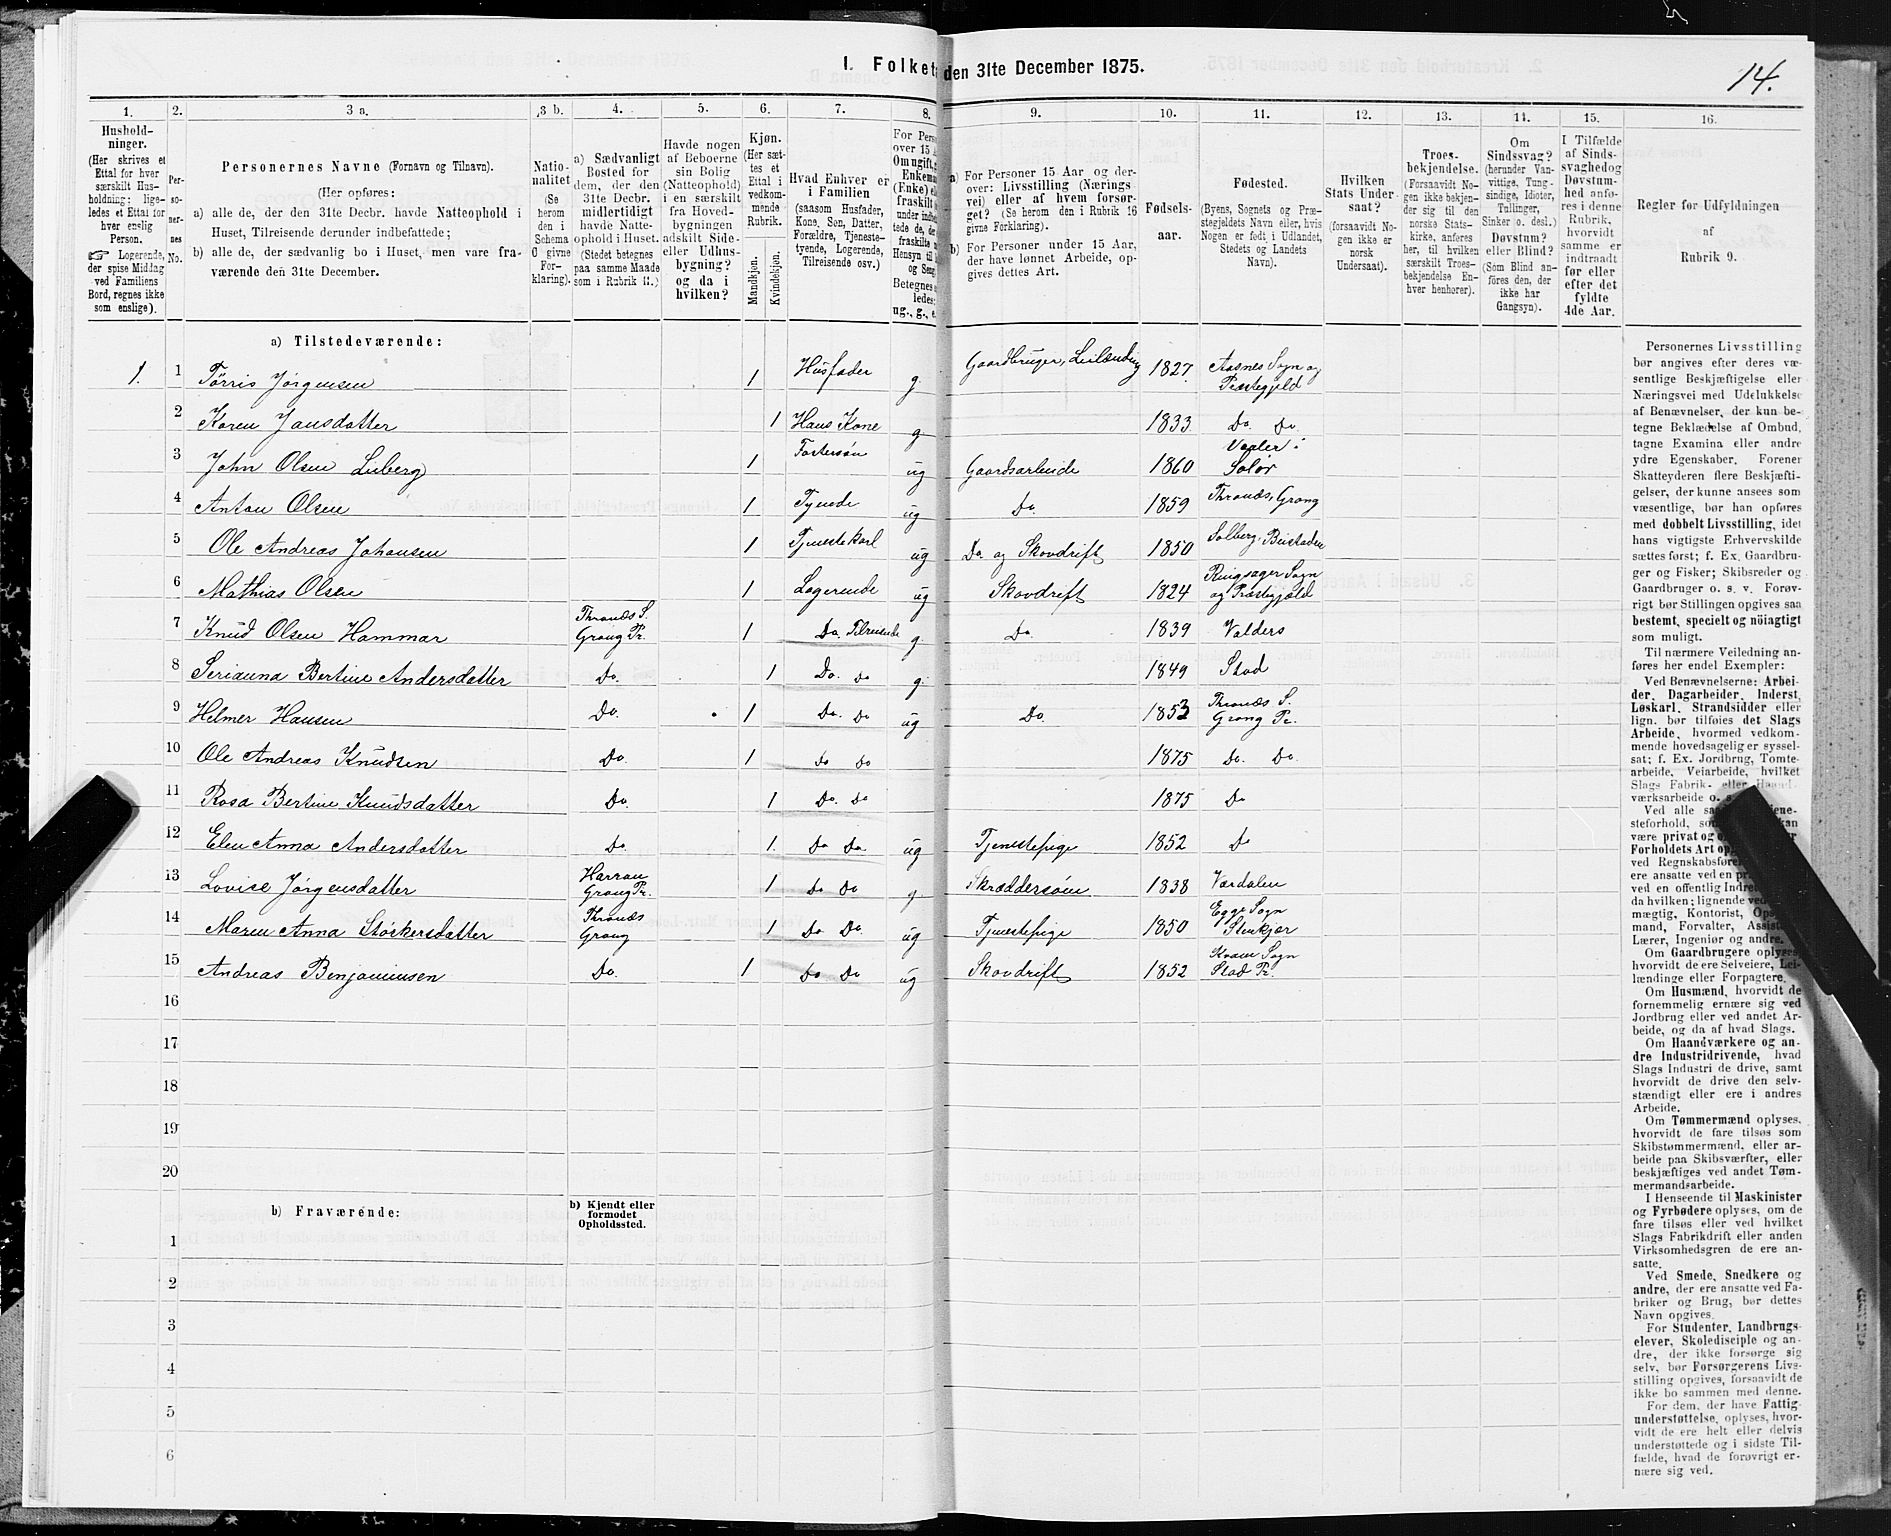 14.
I. Folket
den 31te December 1875.
1. 2. 3 a. 3 b. 4. 5. 6. 7. 8. 9. 10. 11. 12. 13. 14. 15. 16.
Hushold-
ninger.
(Her skrives et
Ettal for hver
særskilt Hus-
holdning: lige-
ledes et Ettal for
hver enslig
Person.
☞ Logerende,
der spise Middag
ved Familiens
Bord, regnes ikke
som enslige).
Per-
so-
ner-
nes
No.
Personernes Navne (Fornavn og Tilnavn).
(Her opføres:
a) alle de, der den 31te Decbr. havde Natteophold i
Huset, Tilreisende derunder indbefattede;
b) alle de, der sædvanlig bo i Huset, men vare fra-
værende den 31te December.
Natio-
nalitet
(Se
herom
den i
Schema
6 givne
For-
klaring).
a) Sædvanligt
Bosted for
dem, der den
31te Decbr.
midlertidigt
havde Natte-
ophold i Huset.
(Stedet betegnes
paa samme Maade
som i Rubrik 11.)
Havde nogen
af Beboerne
sin Bolig
(Natteophold)
i en særskilt
fra Hoved-
bygningen
adskilt Side-
eller Udhus-
bygning?
og da i
hvilken?
Kjøn.
(Her sæt-
tes et
Ettal i
vedkom-
mende
Rubrik.
Mandkjøn.
Kvindekjøn.
Hvad Enhver er
i Familien
(saasom Husfader,
Kone, Søn, Datter,
Forældre, Tjeneste-
tyende, Logerende,
Tilreisende osv.)
For Perso
over 15 A
Om ugift, g
Enkema
(Enke) ell
fraskilt
under indbe
tede de, de
fraskilte
Hensyn til
og Seng
Betegnes
ledes:
ug., g., e.
a) For Personer 15 Aar og der-
over: Livsstilling (Nærings
vei) eller af hvem forsør-
get? (Se herom den i Rubrik 16
givne Forklaring).
b) For Personer under 15 Aar,
der have lønnet Arbeide, op-
gives dettes Art.
Fødsels-
aar.
Fødested.
(Byens, Sognets og Præ-
stegjeldets Navn eller, hvis
Nogen er født i Udlandet,
Stedets og Landets
Navn).
Hvilken
Stats Under-
saat?
(forsaavidt No-
gen ikke er
norsk
Undersaat).
Troes-
bekjendelse.
(Forsaavidt No-
gen ikke bekjen-
der sig til den
norske Stats-
kirke, anføres
her, til hvilken
særskilt Troes-
bekjendelse En-
hver henhører).
Om
Sindssvag?
(herunder Van-
vittige, Tung-
sindige, Idioter,
Tullinger,
Sinker o. desl.)
Døvstum?
eller Blind?
(Som Blind an-
føres den, der
ikke har
Gangsyn).
I Tilfælde
af Sinds-
svaghed og
Døvstum-
hed anfø-
res i denne
Rubrik,
hvorvidt
samme er
indtraadt
før eller
efter det
fyldte
4de Aar.
Regler for Udfyldningen
af
Rubrik 9.
a) Tilstedeværende:
1. 1 Tørris Jørgensen 1 Husfader g. Gaardbruger, Leilænding 1827 Aasnes Sogn og
Præstegjeld
2 Karen Jansdatter 1 Hans Kone g 1833 Do. Do.
3 John Olsen Luberg 1 Fostersøn ug Gaardsarbeide 1860 Vaaler i
Solør
4 Anton Olsen 1 Tyende ug Do. 1859 Thronæs, Grong
5 Ole Andreas Johansen 1 Tjenestekarl ug Do og Skovdrift 1850 Solberg, Beistaden
6 Mathias Olsen 1 Logerende ug Skovdrift 1824 Ringsager Sogn
og Præstegjeld
7 Knud Olsen Hammar Thronæs S.
Grong Pr. 1 Do. Tilreisende g. Do. 1839 Valders
8 Serianna Bertine Andersdatter Do. 1 Do. Do g. 1849 Stod
9 Helmer Hansen Do. 1 Do. Do ug Do 1853 Thronæs S.
Grong Pr.
10 Ole Andreas Knudsen Do. 1 Do Do 1875 Do. Do.
11 Rosa Bertine Knudsdatter Do. 1 Do. Do 1875 Do
12 Elen Anna Andersdatter Do 1. Do Do. ug Tjenestepige 1852 Do
13 Lovise Jørgensdatter Harran
Grong Pr. 1 Do Do g Skræddersøm 1838 Værdalen
14 Maren Anna Storkersdatter Thronæs
Grong 1 Do Do. ug Tjenestepige 1850 Egge Sogn
Stenkjær
15 Andreas Benjaminsen Do. 1 Do Do ug Skovdrift 1852 Kvam Sogn
Stod Pr.
16
17
18
19
20
b) Fraværende:
b) Kjendt eller
formodet
Opholdssted.
1
2
3
4
5
6
Personernes Livsstilling
bør angives efter deres væ-
sentlige Beskjæftigelse eller
Næringsvei med Udelukkelse
af Benævnelser, der kun be-
tegne Beklædelse af Ombud,
tagne Examina eller andre
ydre Egenskaber. Forener
Skatteyderen flere Beskjæfti-
gelser, der kunne ansees som
væsentlige, bør han opføres
med dobbelt Livsstilling, idet
hans vigtigste Erhvervskilde
sættes først; f. Ex. Gaardbru-
ger og Fisker; Skibsreder og
Gaardbruger o. s. v. Forøv-
rigt bør Stillingen opgives saa
bestemt, specielt og nöiagtigt
som muligt.
Til nærmere Veiledning an-
føres her endel Exempler:
Ved Benævnelserne: Arbei-
der, Dagarbeider, Inderst,
Løskarl, Strandsidder eller
lign. bør tilføies det Slags
Arbeide, hvormed vedkom-
mende hovedsagelig er syssel-
sat; f. Ex. Jordbrug, Tomte-
arbeide, Veiarbeide, hvilket
Slags Fabrik- eller Haand-
værksarbeide o. s.
Ved alle
steforhold,
være privat og
Forholdets Art
ved Regnskabsføre
ere ansatte ved en
ved en offentlig Indre
da hvilken; lignende ved
mægtig, Kontorist,
mand, Forvalter,
Lærer, Ingeniør og andre.
Om Gaardbrugere oplyses,
hvorvidt de ere Selveiere, Lei-
lændinge eller Forpagtere.
Om Husmænd, hvorvidt de
fornemmelig ernære sig ved
Jordbrug eller ved andet Ar-
beide, og da af hvad Slags.
Om Haandværkere og an-
dre Industridrivende, hvad
Slags Industri de drive, samt
hvorvidt de drive den selv-
stændigt eller ere i andres
Arbeide.
Om Tømmermænd oplyses,
hvorvidt de fare tilsøs som
Skibstømmermænd, eller ar-
beide paa Skibsværfter, eller
beskjæftiges ved andet Tøm-
mermandsarbeide.
I Henseende til Maskinister
og Fyrbødere oplyses, om de
fare tilsøs eller ved hvilket
Slags Fabrikdrift eller anden
Virksomhedsgren de ere an-
satte.
Ved Smede, Snedkere og
andre, der ere ansatte ved Fa-
briker og Brug, bør dettes
Navn opgives.
For Studenter, Landbrugs-
elever, Skoledisciple og an-
dre, der ikke forsørge sig
selv, bør Forsørgerens Livs-
stilling opgives, forsaavidt de
ikke bo sammen med denne.
For dem, der have Fattig-
understøttelse, oplyses, hvor-
vidt de ere helt eller delvis
understøttede og i sidste Til-
fælde, hvad de forøvrigt er-
nære sig ved.